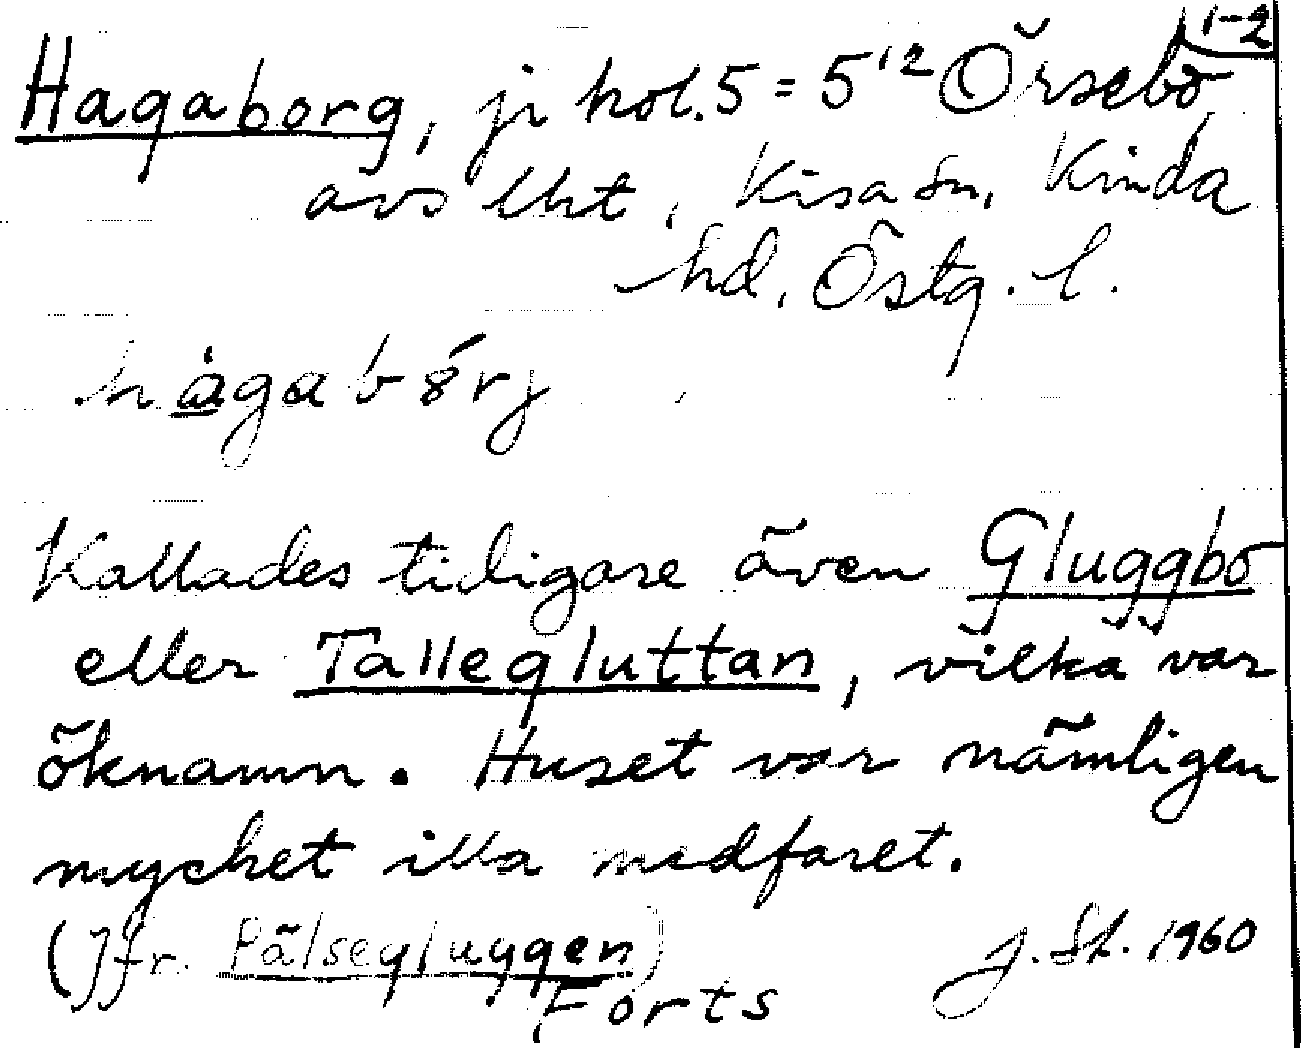 1-2
Hagaborg, ji kol. 5 = 5¹² Örsebo
avs lht, Kisa sn, Kinda
hd. Östg. l.
hågabórj
Kallades tidigare även Gluggbo
eller Tallegluttan, vilka var
öknamn. Huset var nämligen
mycket illa medfaret.
(Jfr. Pälsegluggen)
J. St. 1960
Forts